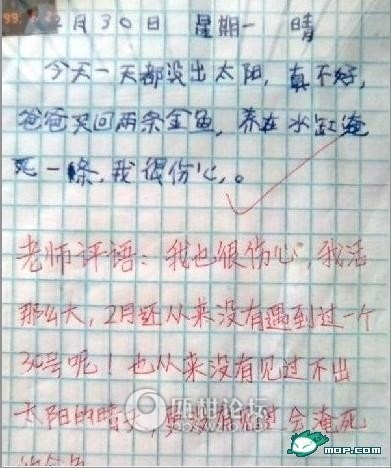 2月30日 星期一 晴
今天一天都没出太阳,真不好,
爸爸买回两条金鱼,养在水缸淹
死一條,我很伤心,。
老师评语:我也很伤心,我活
那么大,2月还从来没有遇到过一个
30号呢!也从来没有见过不出
太阳的晴天,更没有 过会淹死
的金鱼
瓯柑论坛
MOP.COM